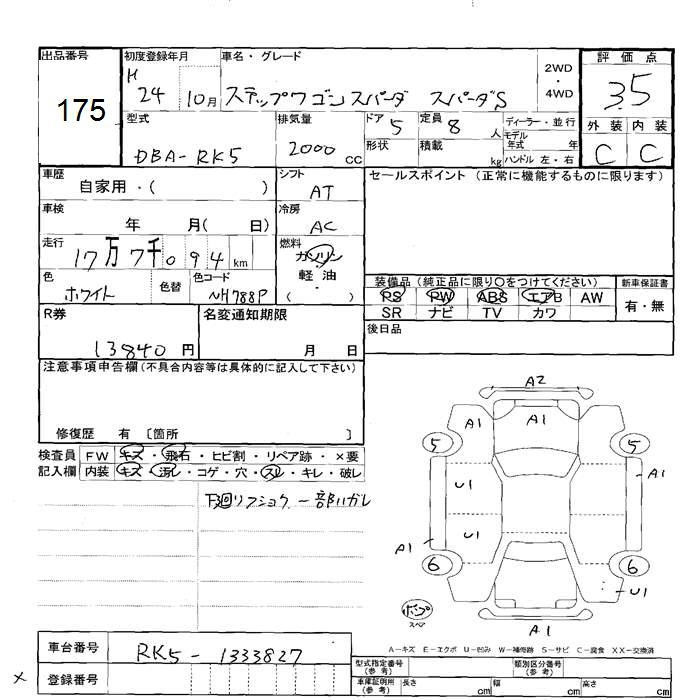 出品番号 175
初度登録年月 H 24 10月
車名・グレード ステップワゴンスパーダ スパーダS
2WD・4WD
評価点 3.5
外装 C 内装 C
型式 DBA-RK5
排気量 2000 cc
ドア 5 形状
定員 8 人 積載 kg
ディーラー・並行
モデル年式 年
ハンドル 左・右
車歴 自家用・( )
シフト AT
セールスポイント (正常に機能するものに限ります)
車検 年 月( 日)
冷房 AC
走行 17万7千094 km
燃料 ガソリン・軽油 ( )
色 ホワイト 色替 色コード NH788P
装備品 (純正品に限り○をつけてください) 新車保証書
PS PW ABS エアB AW 有・無
SR ナビ TV カワ
R券 13840 円
名変通知期限 月 日
後日品
注意事項申告欄(不具合内容等は具体的に記入して下さい)
修復歴 有 〔箇所 〕
検査員 FW キズ・飛石・ヒビ割・リペア跡・×要
記入欄 内装 キズ・汚レ・コゲ・穴・スレ・キレ・破レ
下廻リフショク 一部ハガレ
A2
A1 A1
5 5
U1 A1
U1
A1
6 6
U1
スペア
A1
A-キズ E-エクボ U-凹み W-補修跡 S-サビ C-腐食 XX-交換済
車台番号 RK5-1333827
型式指定番号(参考) 類別区分番号(参考)
× 登録番号
車庫証明用(参考) 長さ cm 幅 cm 高さ cm